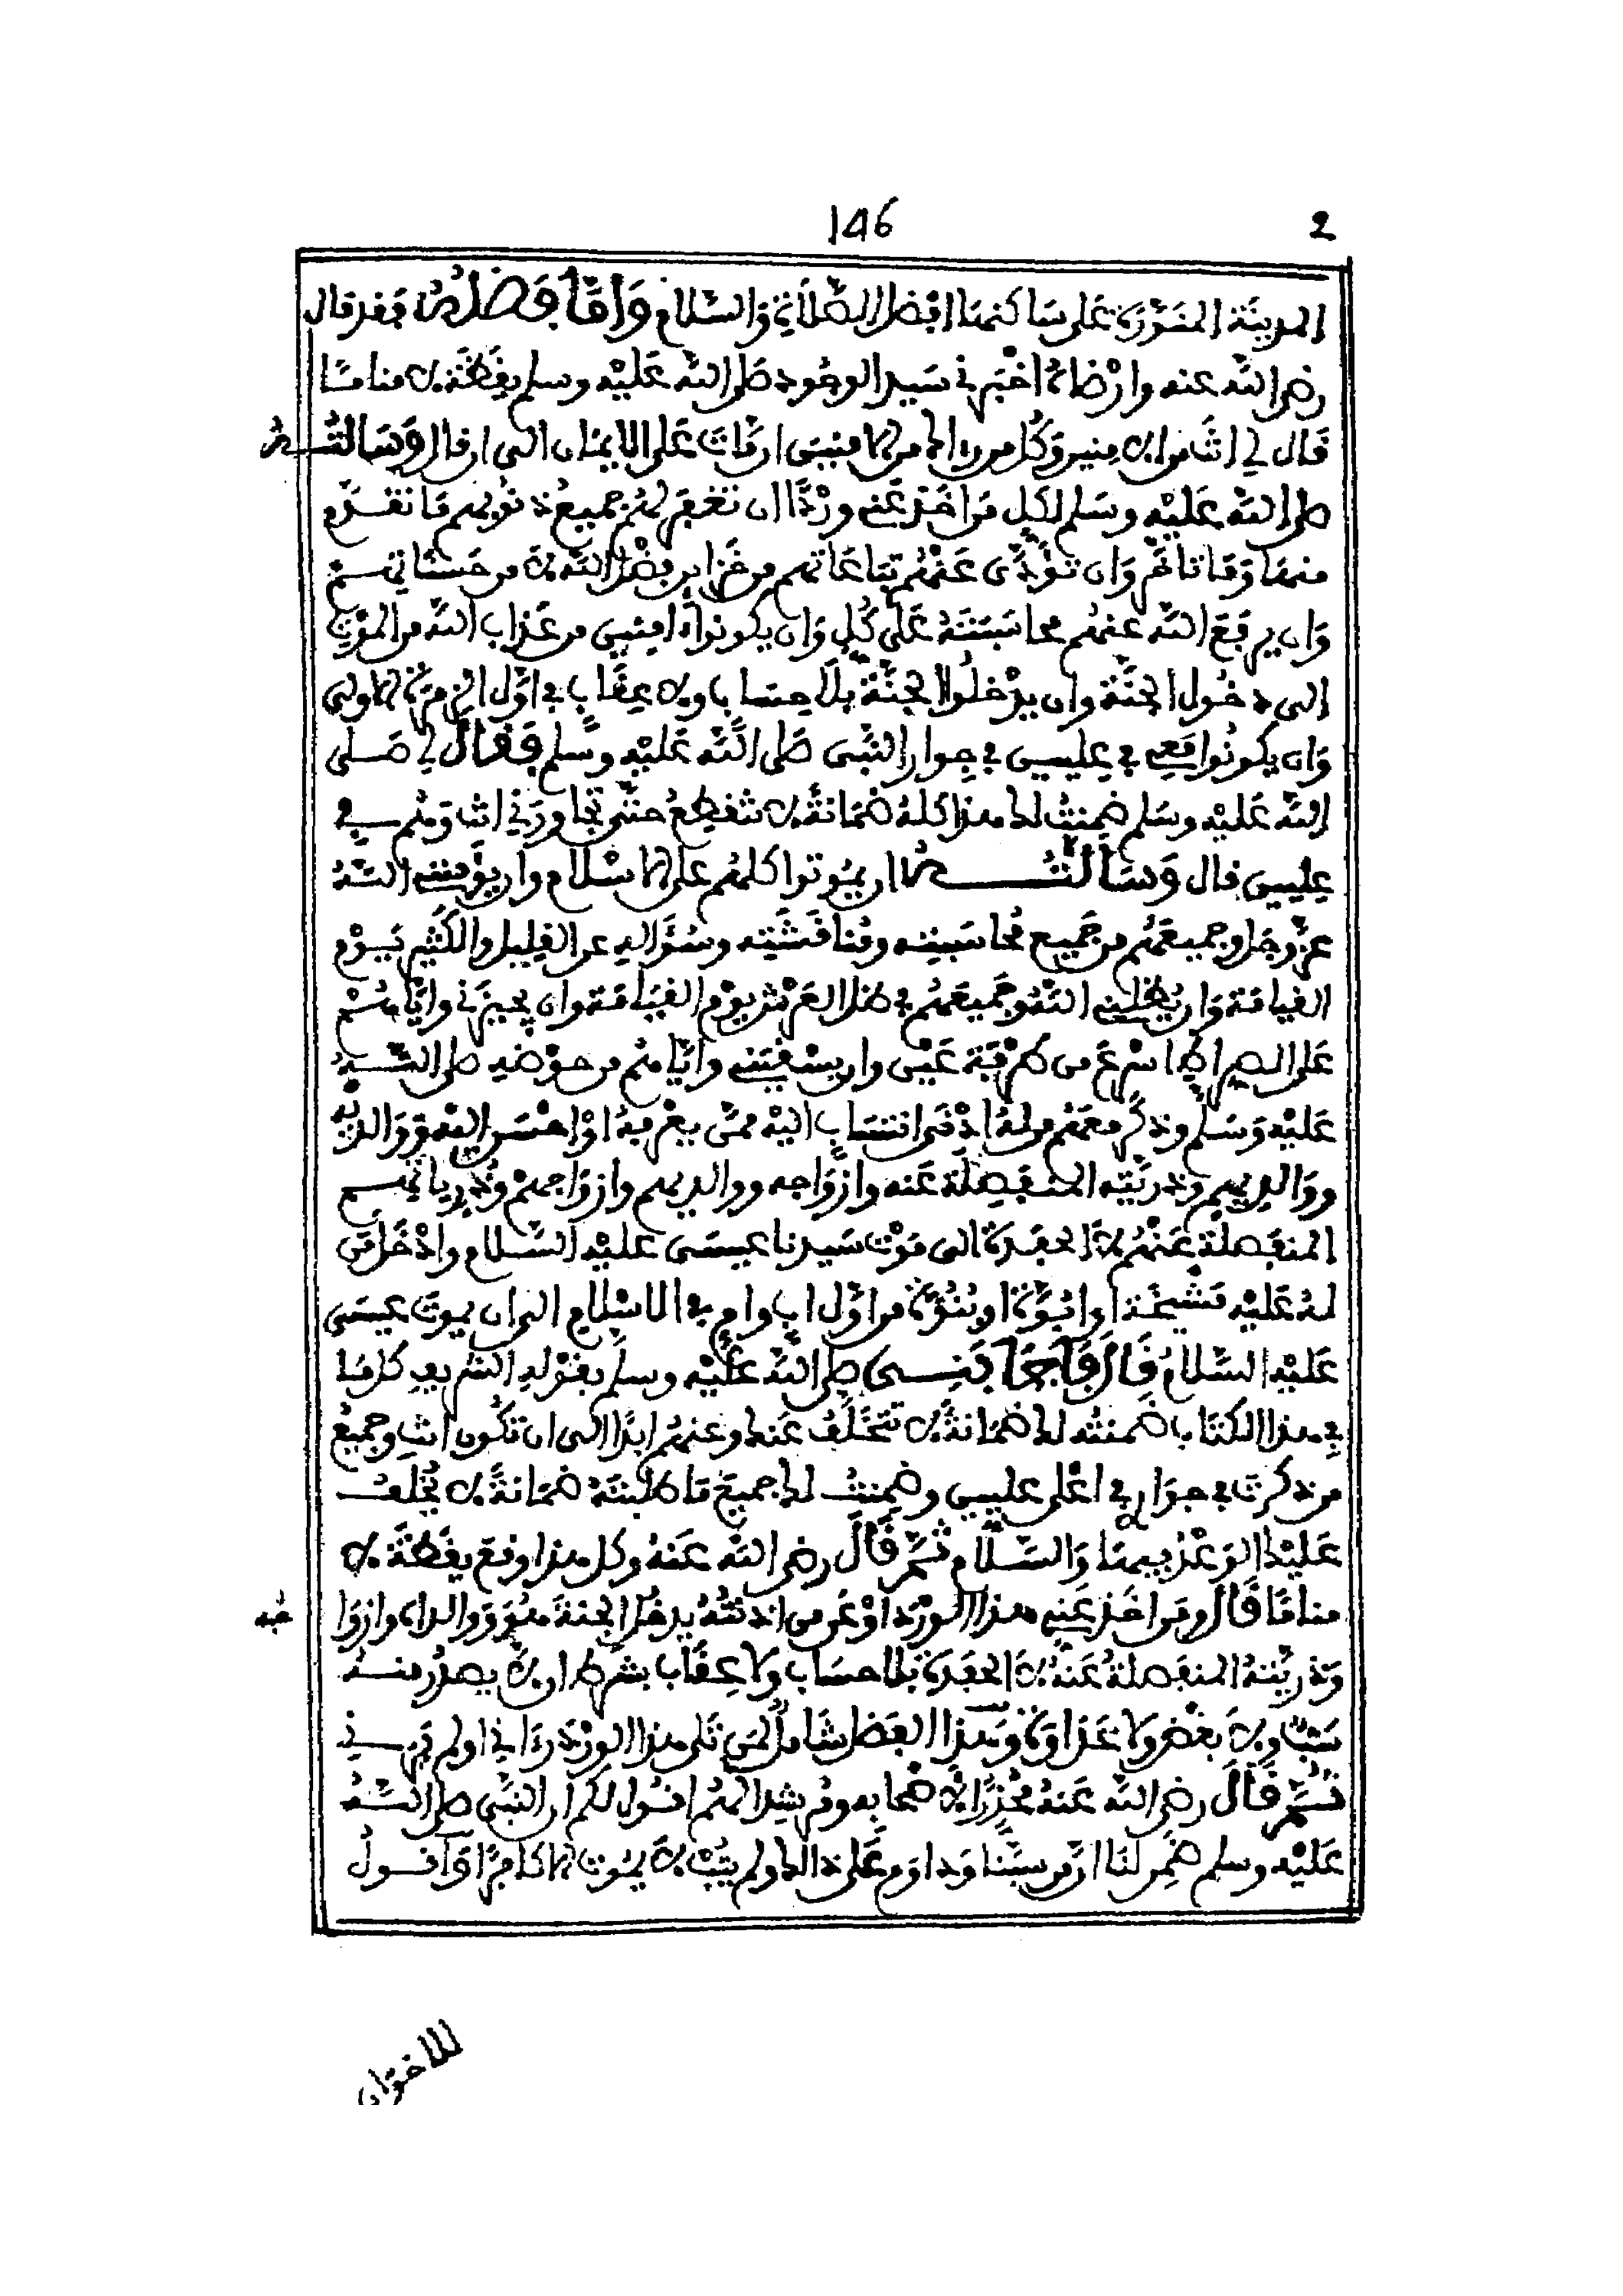 146
2
المدينة المنورة على ساكنها افضل الصلاة والسلام وَاَمَّا فَضْلُهُ فقد قال
رضى الله عنه وارضاه اخبرنى سيد الوجود صلى الله عليه وسلم يقظة لا مناما
قال لى انت من الآمنين وكل من رءاك من الآمنين ان مات على الايمان الى ان قال وَسَألْتُهُ
صلى الله عليه وسلم لكل من اخذ عنى وردا ان تغفر لهم جميع ذنوبهم ما تقدم
منها وما تأخر وان تؤدى عنهم تباعاتهم من خزائن فضل الله لا من حسناتهم
وان يرفع الله عنهم محاسبته على كل وان يكونوا ءامنين من عذاب الله من الموت
الى دخول الجنة وان يدخلوا الجنة بلا حساب ولا عقاب فى اول الزمرة الاولى
وان يكونوا معى فى عليين فى جوار النبى صلى الله عليه وسلم فَقَالَ لى صلى
الله عليه وسلم ضمنت لك هذا كله ضمانة لا تنقطع حتى تجاورنى انت وهم فى
عليين قال وَسَألْتُهُ ان يموتوا كلهم على الاسلام وان يؤمننى الله
عز وجل وجميعهم من جميع محاسبته ومناقشته وسؤاله عن القليل والكثير يوم
القيامة وان يظلنى الله وجميعهم فى ظل العرش يوم القيامة وان يجيزنى واياهم
على الصراط اسرع من طرفة عين وان يسقينى واياهم من حوضه صلى الله
عليه وسلم وذكر معهم من له ادنى انتساب اليه ممن يعرفه او احسن اليه ووالديه
ووالديهم وذريته المنفصلة عنه وازواجه ووالديهم وازواجهم وذرياتهم
المنفصلة عنهم لا الحفدة الى موت سيدنا عيسى عليه السلام وادخل من
له عليه مشيخة او ابوة او بنوة من اول اب وام فى الاسلام الى ان يموت عيسى
عليه السلام قَالَ فَأَجَابَنِى صلى الله عليه وسلم بقوله الشريف كل ما
فى هذا الكتاب ضمنته لك ضمانة لا تتخلف عنك وعنهم ابدا الى ان تكون انت وجميع
من ذكرت فى جوارى فى اعلى عليين وضمنت لك جميع ما طلبته ضمانة لا يخلف
عليك الوعد فيها والسلام ثُمَّ قَالَ رضى الله عنه وكل هذا وقع يقظة لا
مناما قَالَ ومن اخذ عنى هذا الورد او عن من اذنته يدخل الجنة هو ووالداه وازوا
جه
وذريته المنفصلة عنه لا الحفدة بلا حساب ولا عقاب بشرط ان لا يصدر منه
سب ولا بغض ولا عداوة وهذا الفضل شامل لمن تلى هذا الورد رءانى او لم يرنى
ثُمَّ قَالَ رضى الله عنه محذرا لأصحابه ومرشدا لهم اقول لكم ان النبى صلى الله
عليه وسلم ضمن لنا ان من سبنا وداوم على ذلك ولم يتب لا يموت الا كافرا واقول
للاخوان